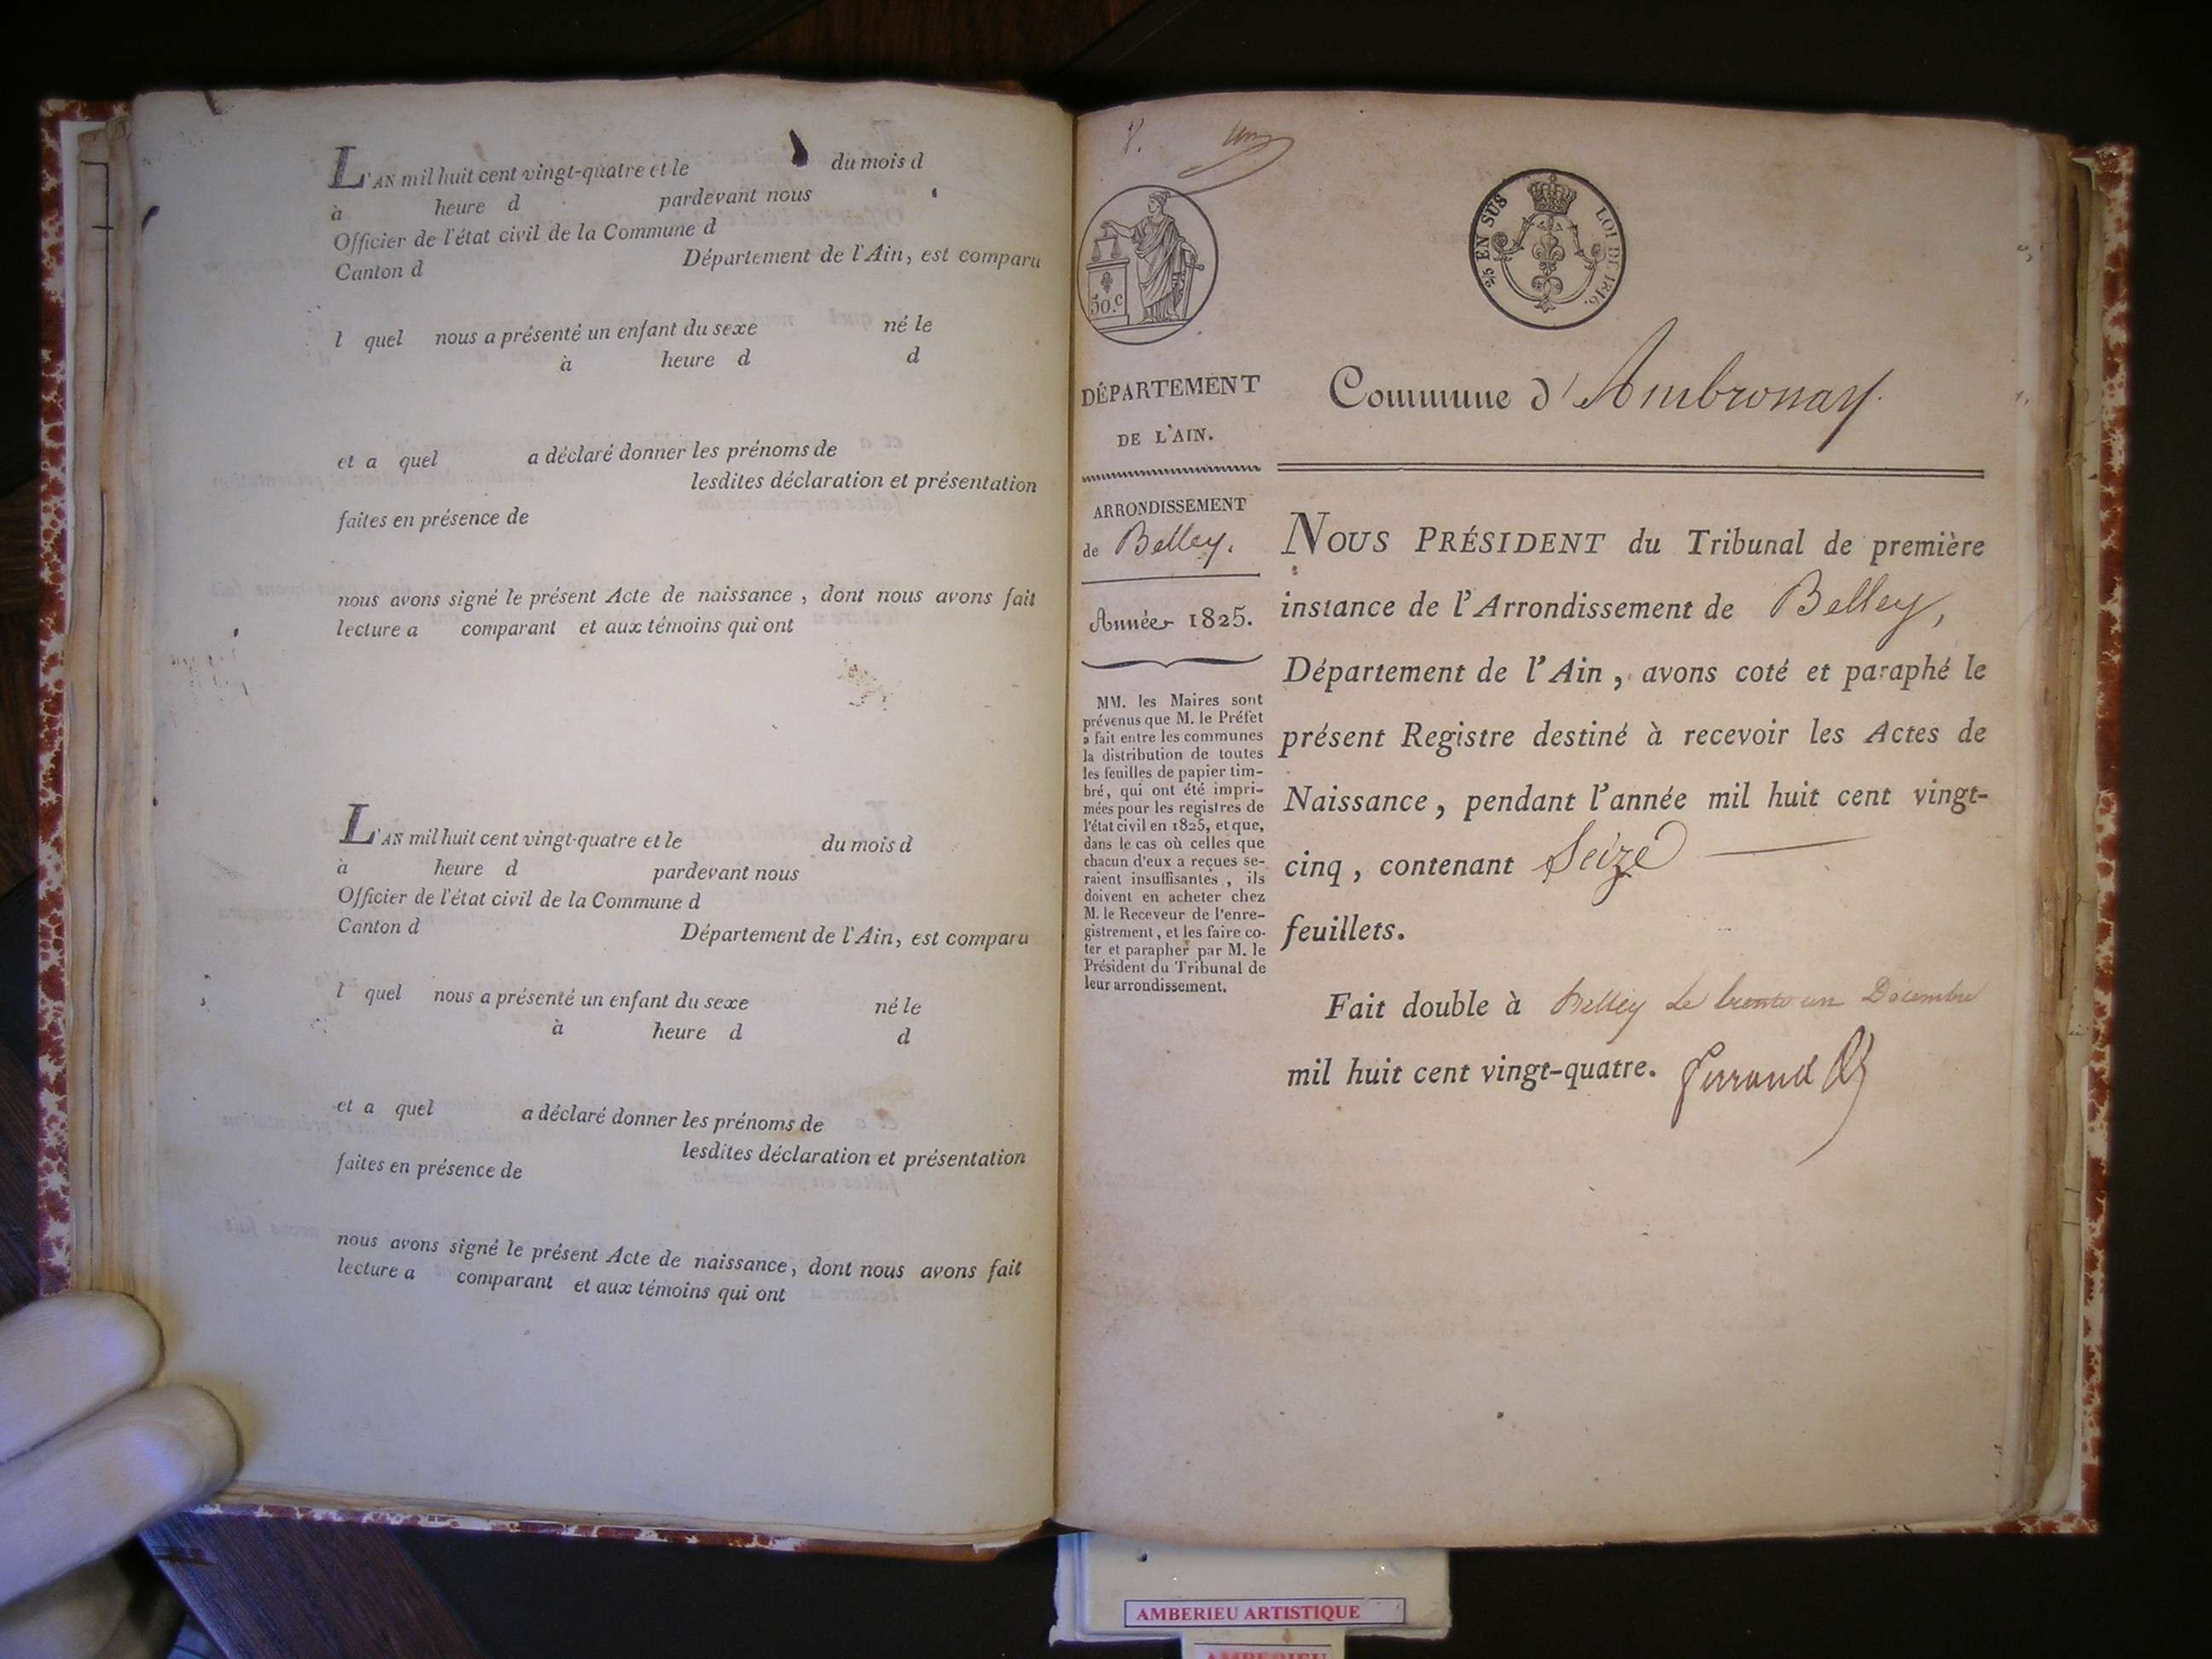 L'AN mil huit cent vingt-quatre et le du mois d
à heure d pardevant nous
Officier de l'état civil de la Commune d
Canton d Département de l'Ain, est comparu
l quel nous a présenté un enfant du sexe né le
à heure d d
et a quel a déclaré donner les prénoms de
lesdites déclaration et présentation
faites en présence de
nous avons signé le présent Acte de naissance, dont nous avons fait
lecture a comparant et aux témoins qui ont
L'AN mil huit cent vingt-quatre et le du mois d
à heure d pardevant nous
Officier de l'état civil de la Commune d
Canton d Département de l'Ain, est comparu
l quel nous a présenté un enfant du sexe né le
à heure d d
et a quel a déclaré donner les prénoms de
lesdites déclaration et présentation
faites en présence de
nous avons signé le présent Acte de naissance, dont nous avons fait
lecture a comparant et aux témoins qui ont
50.c
EN SUS LOI DE 1816.
DÉPARTEMENT
DE L'AIN.
ARRONDISSEMENT
de Belley.
Année 1825.
MM. les Maires sont
prévenus que M. le Préfet
a fait entre les communes
la distribution de toutes
les feuilles de papier tim-
bré, qui ont été impri-
mées pour les registres de
l'état civil en 1825, et que,
dans le cas où celles que
chacun d'eux a reçues se-
raient insuffisantes, ils
doivent en acheter chez
M. le Receveur de l'enre-
gistrement, et les faire co-
ter et parapher par M. le
Président du Tribunal de
leur arrondissement.
Commune d'Ambronay.
NOUS PRÉSIDENT du Tribunal de première
instance de l'Arrondissement de Belley,
Département de l'Ain, avons coté et paraphé le
présent Registre destiné à recevoir les Actes de
Naissance, pendant l'année mil huit cent vingt-
cinq, contenant Seize
feuillets.
Fait double à Belley le trente un Décembre
mil huit cent vingt-quatre.
AMBERIEU ARTISTIQUE
AMBERIEU